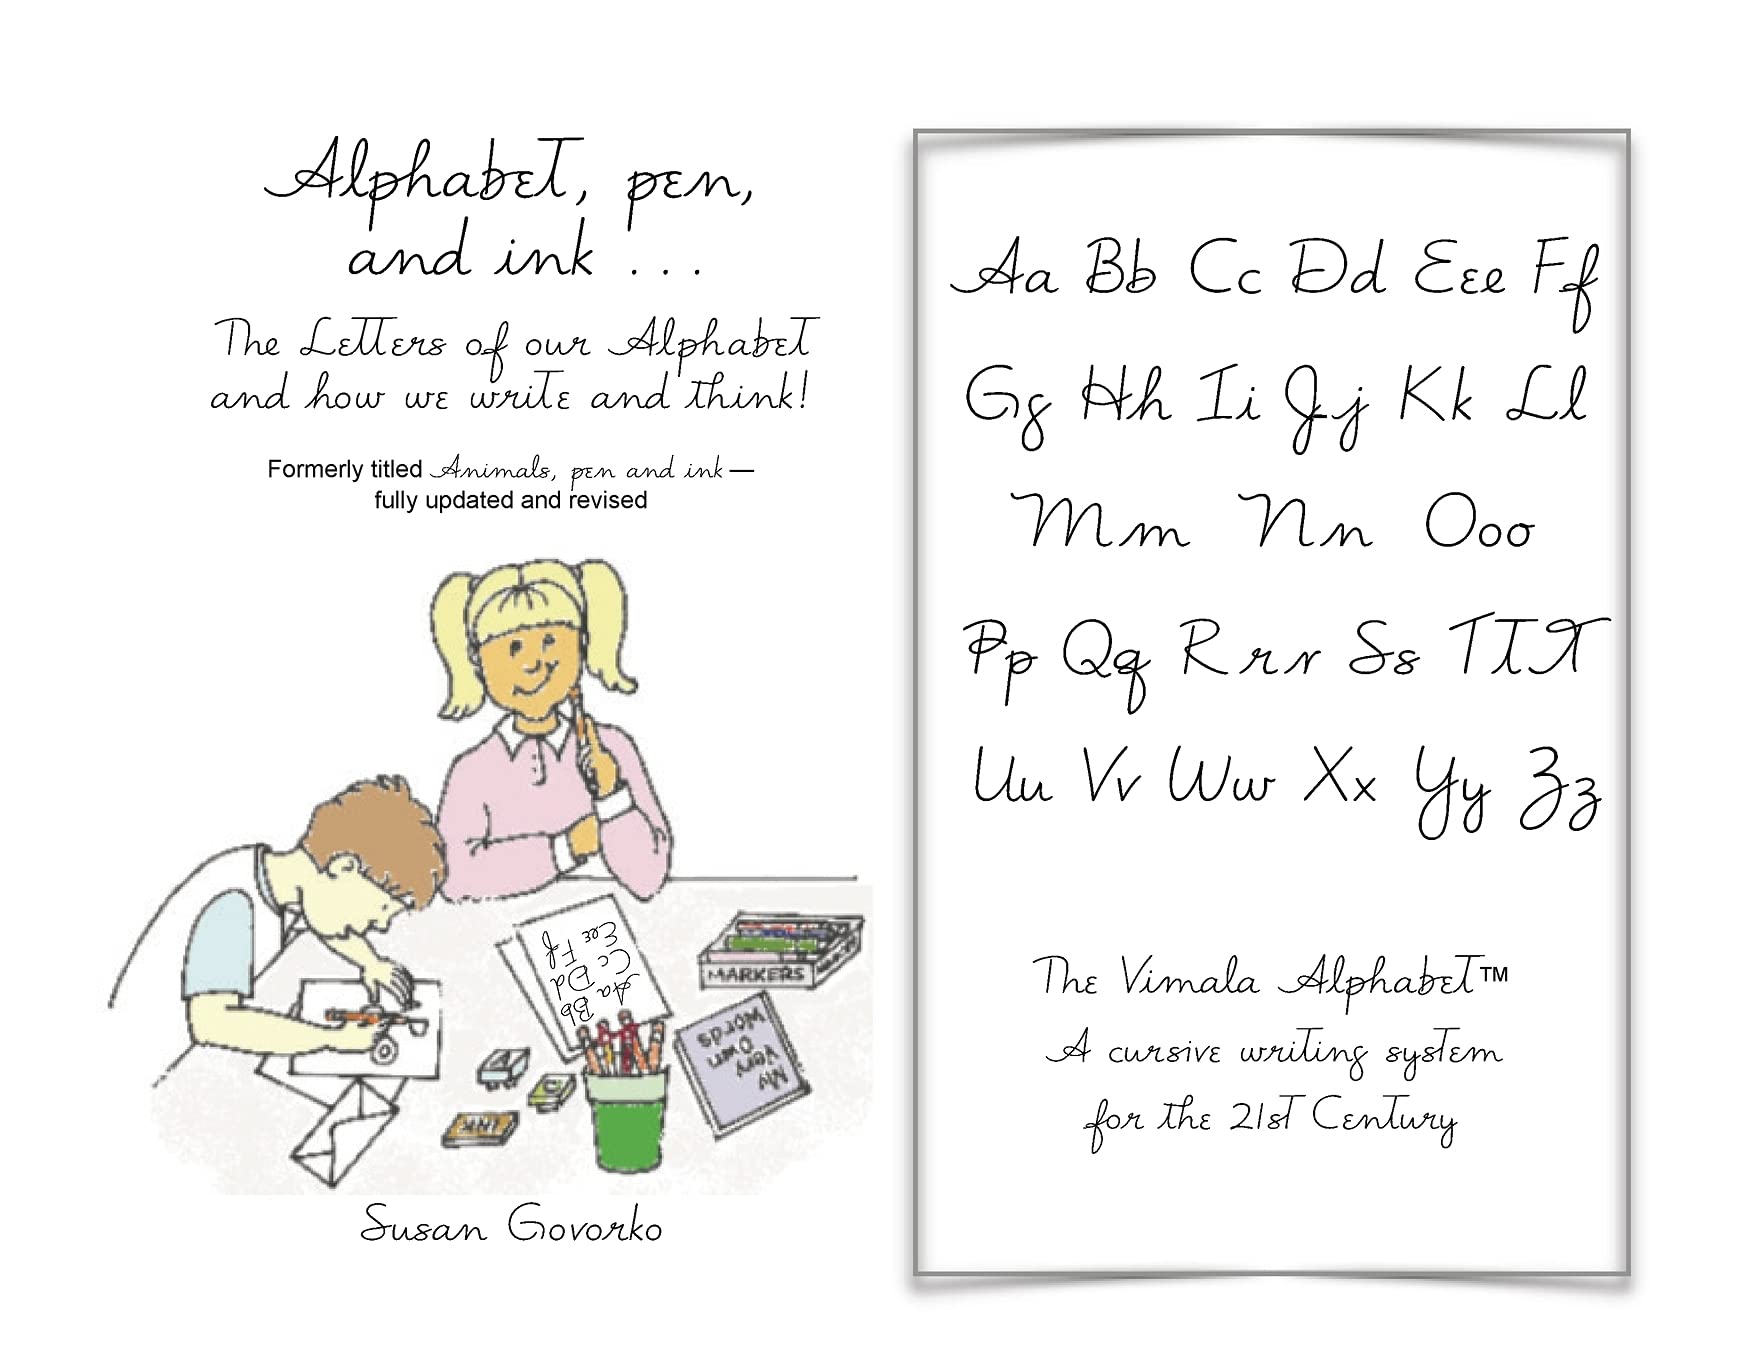 Alphabet, pen,
and ink . . .
The Letters of our Alphabet
and how we write and think!
Formerly titled Animals, pen and ink —
fully updated and revised
Aa Bb Cc Dd Eee Ff
MARKERS
My
Very
Own
Words
INK
Susan Govorko
Aa Bb Cc Dd Eee Ff
Gg Hh Ii Jj Kk Ll
Mm Nn Ooo
Pp Qq Rrr Ss TTT
Uu Vv Ww Xx Yy Zz
The Vimala Alphabet™
A cursive writing system
for the 21st Century